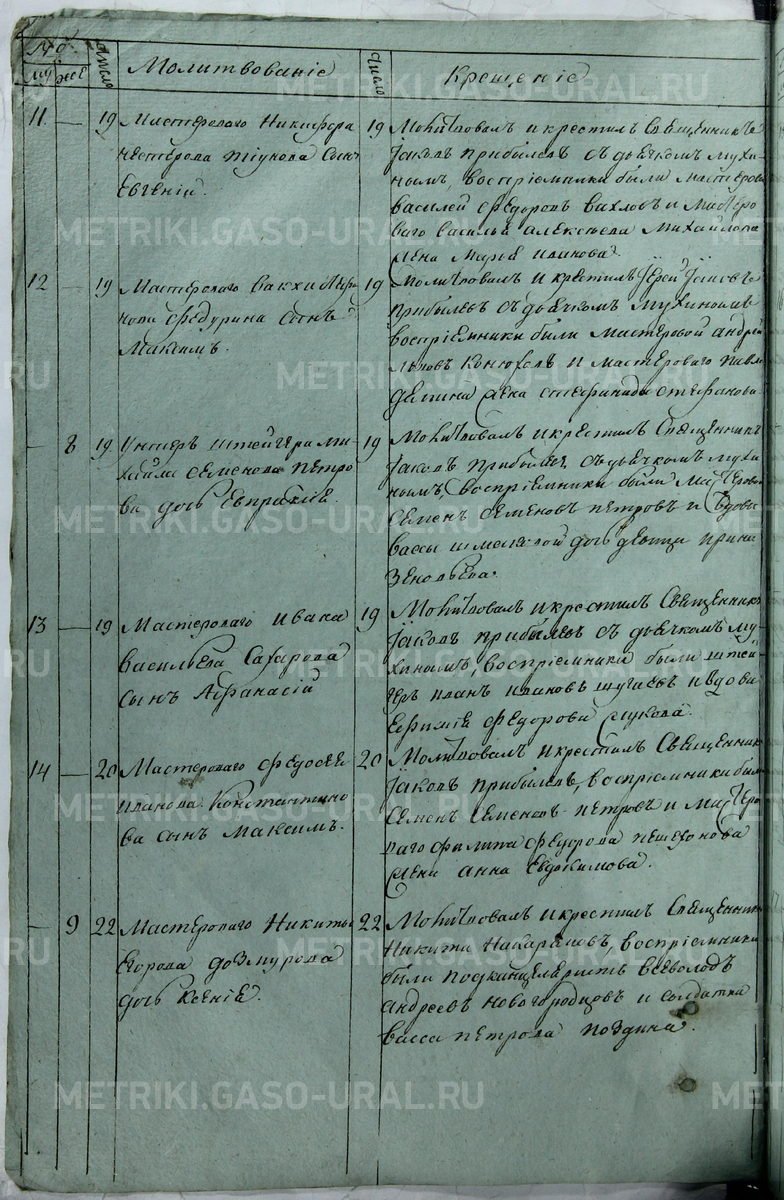 №
му же
число
Молитвованіе
число
Крещеніе
11 — 19 Мастероваго Никифора
Нестерова Тіунова сынъ
Евгеній.
19 Молитвовалъ и крестилъ Священникъ
Іаковъ Прибылевъ съ дьячкомъ Мухи-
нымъ, воспріемники были мастеровой
Василей Федоровъ Вахловъ и Мастеро
ваго Василья Алексѣева Михайлова
жена Марья Иванова.
12 — 19 Мастероваго
Федурина сынъ
Максимъ.
19 Молитвовалъ и крестилъ Іерей Іаковъ
Прибылевъ съ дьячкомъ Мухинымъ
воспріемники были Мастеровой Андрей
Конюховъ и Мастероваго Павла
жена Стефанова.
— 8 19 Унтеръ Штейгера Ми-
хайла Семенова Петро
ва дочь Евпраксіе.
19 Молитвовалъ и крестилъ Священникъ
Іаковъ Прибылевъ съ дьячкомъ Мухи
нымъ, воспріемники были Мастеровой
Семенъ Семеновъ Петровъ и вдовы
Вассы дочь девица Ирина
Зеновьева.
13 — 19 Мастероваго Ивана
Васильева Сахарова
сынъ Афанасій
19 Молитвовалъ и крестилъ Священникъ
Іаковъ Прибылевъ съ дьячкомъ Му-
хинымъ, воспріемники были штей-
геръ Иванъ Ивановъ Шугаевъ и вдова
Ефиміе Федорова
14 — 20 Мастероваго Федосея
Иванова Константино
ва сынъ Максимъ.
20 Молитвовалъ и крестилъ Священникъ
Іаковъ Прибылевъ, воспріемники были
Семенъ Семеновъ Петровъ и Мастеро
ваго Филипа Федорова Пешехонова
жена Анна Евдокимова.
— 9 22 Мастероваго Никиты
Егорова Довмурова
дочь Ксеніе.
22 Молитвовалъ и крестилъ Священникъ
Никита Накаряковъ, воспріемники
были Подканцеляристъ Всеволодъ
Андреевъ Новогородцовъ и солдатка
Васса Петрова Поздина.
METRIKI.GASO-URAL.RU